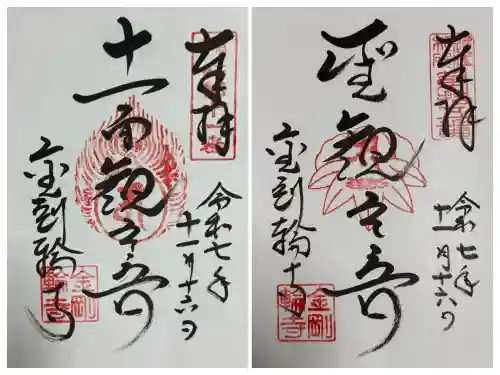 奉拝
令和七年
十一月十六日
十一面観世音
金剛輪寺
金剛
輪寺
奉拝
令和七年
十一月十六日
聖観世音
金剛輪寺
金剛
輪寺